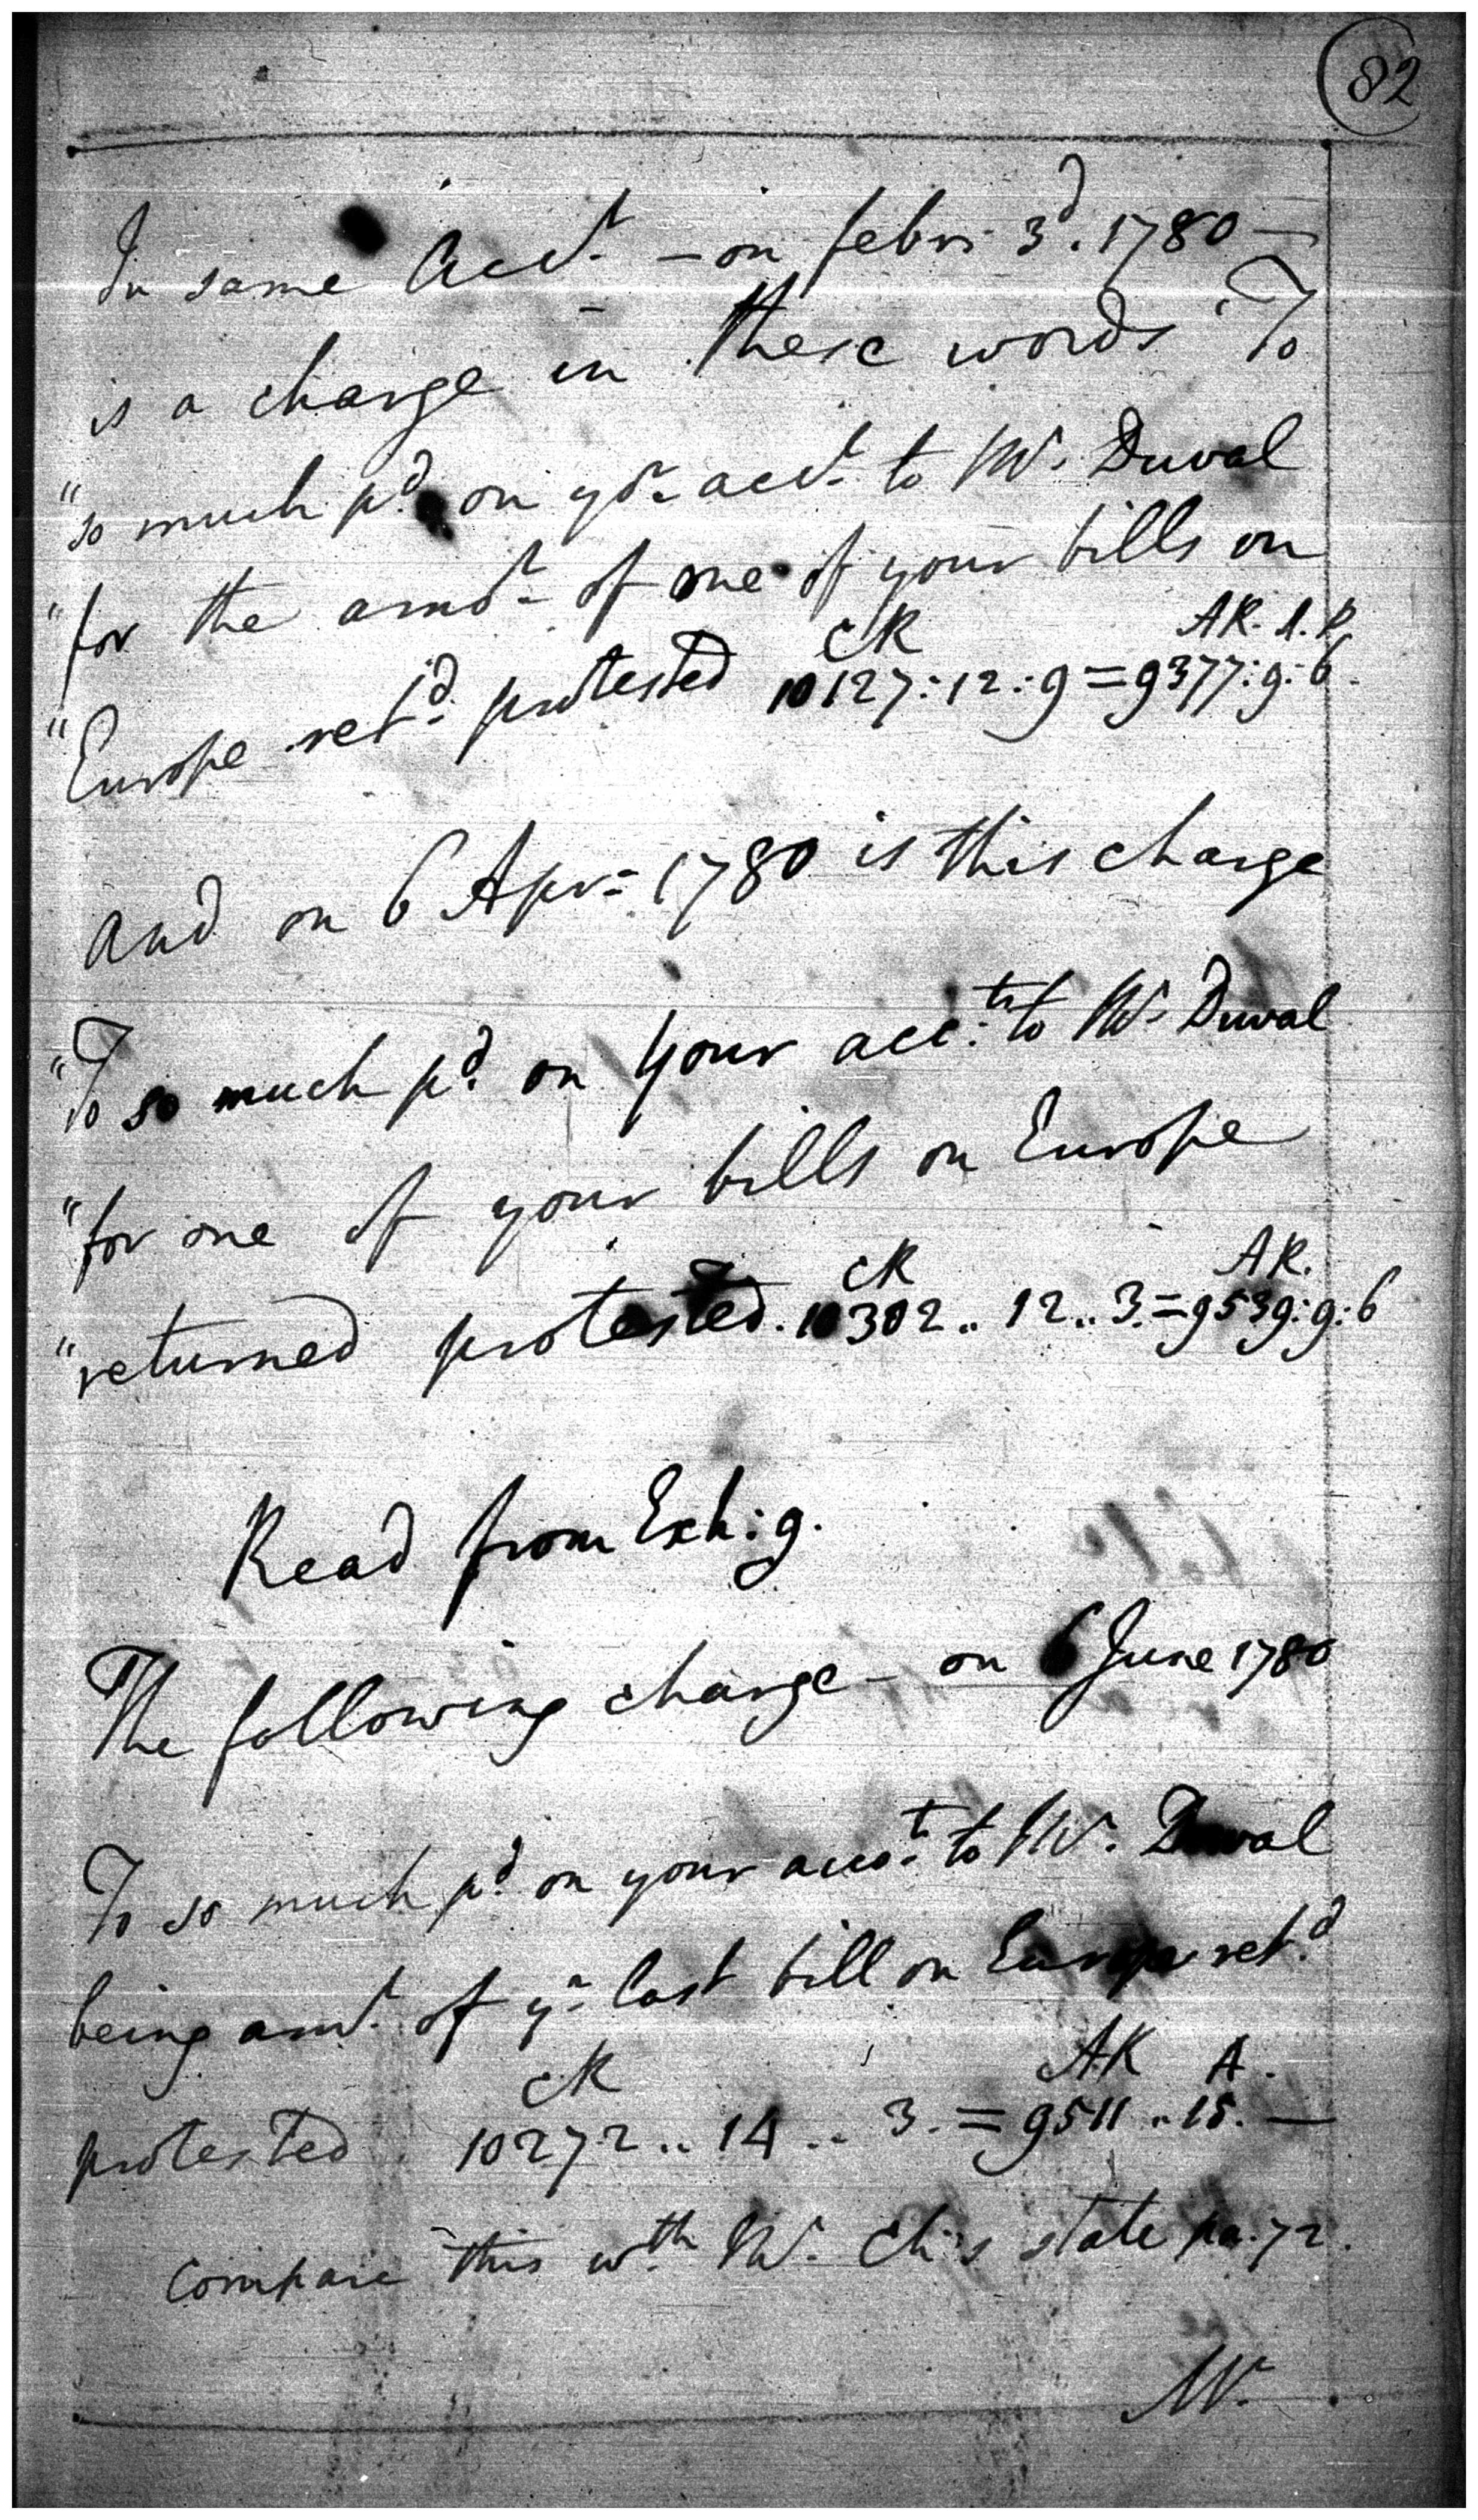 82
In same Acct. - on febry 3d. 1780 -
is a charge in these words "To
"so much pd. on yor. acct. to Mr. Duval
"for the amot. of one of your bills on
CR AR. A. P.
"Europe retd. protested 10127:12:9=9377:9:6.
And on 6 Apr= 1780 is this charge
"To so much pd. on your acc:ts to Mr. Duval
"for one of your bills on Europe
CR AR.
"returned protested. 10302.. 12.. 3.=9539:9:6
Read from Exh: 9.
The following charge - on 6 June 1780
To so much pd. on your acco:t to Mr. Duval
being amt. of yr. last bill on Europe ret.d
CR AR A.
protested 10272.. 14.. 3. = 9511.. 15. —
Compare this wth Mr. Ch:s state pa: 72.
Mr.